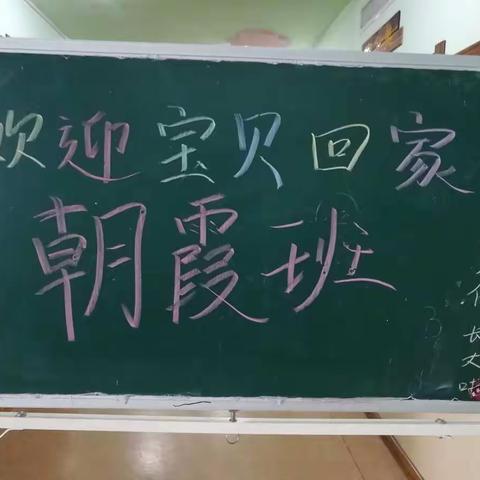 欢迎宝贝回家
朝霞班
长大啦